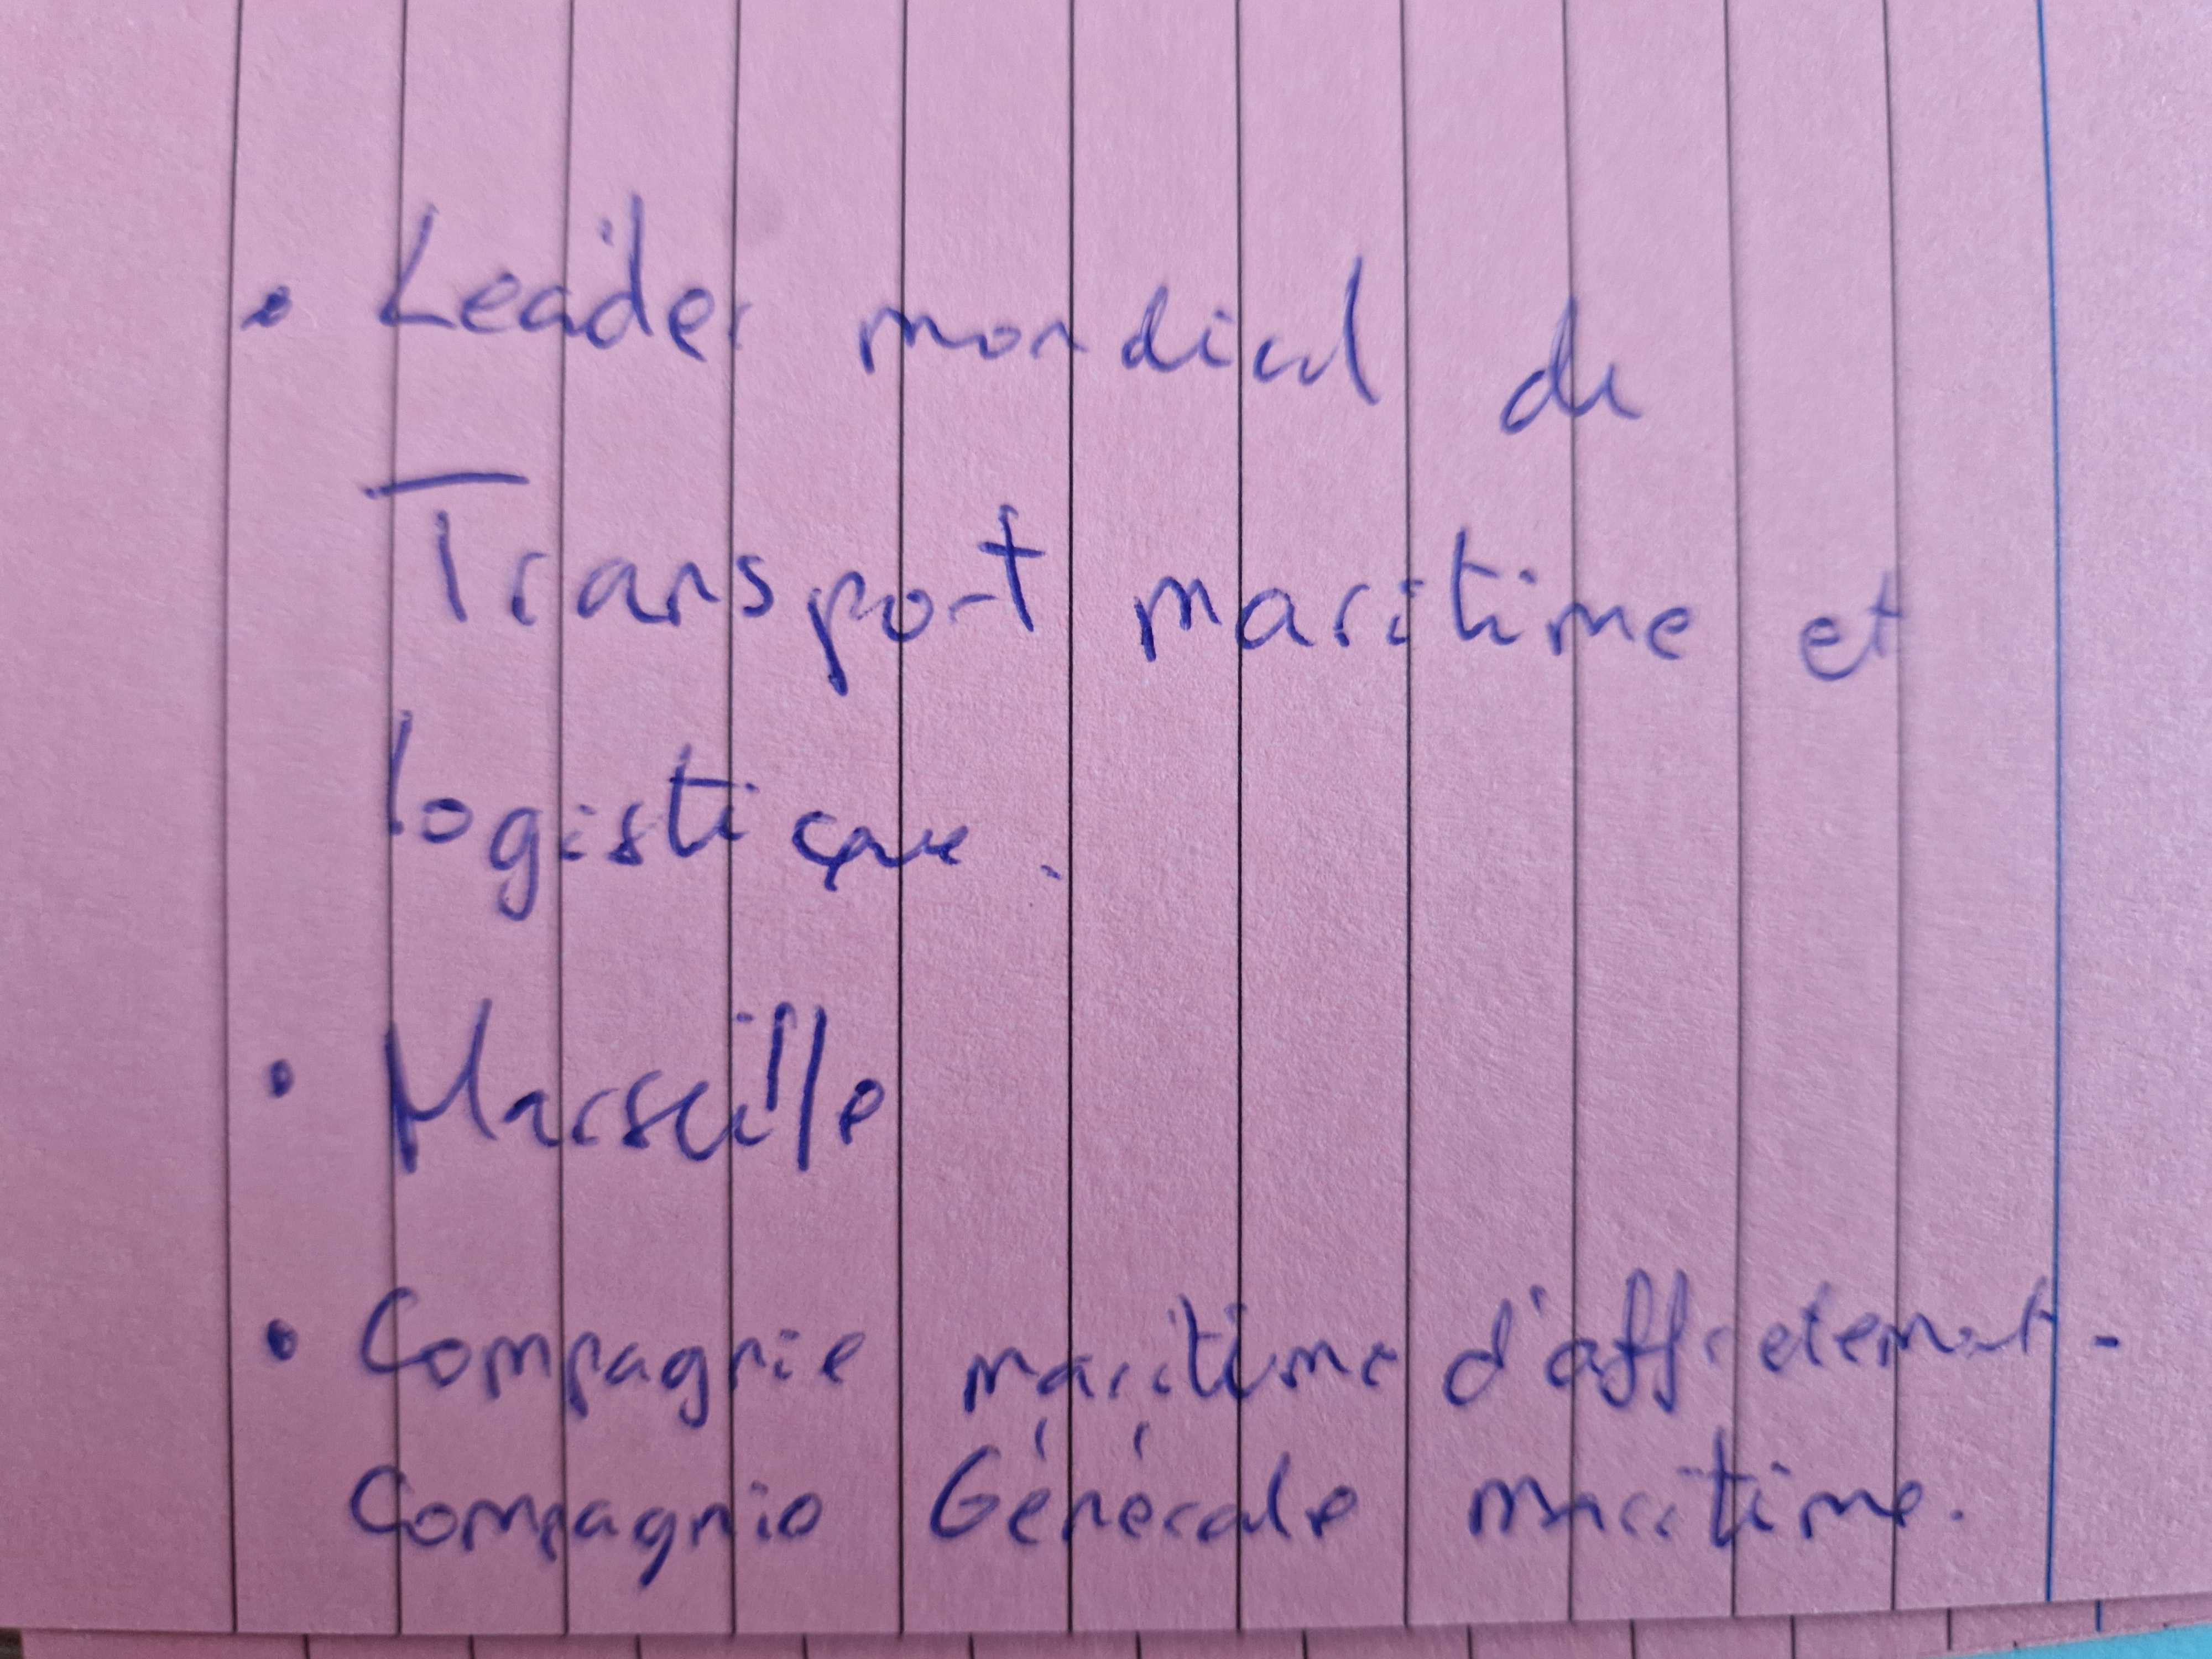 • Leader mondial du
Transport maritime et
logistique.
• Marseille
• Compagnie maritime d'affretement -
Compagnie Générale maritime.